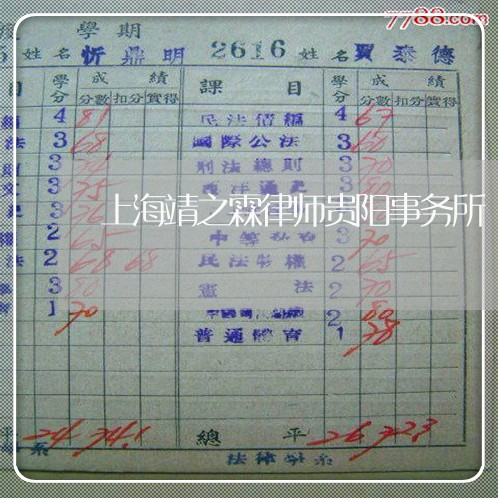 7788.com
學期
姓名 忻鼎明 2616 姓名 賈泰德
目 學分 成績 課目 學分 成績
分數 扣分 實得 分數 扣分 實得
4 81 民法債編 4 67
法 3 68 國際公法 3 60
3 刑法總則 3 70
文 3 75 西洋通史 3 80
3 76 3
上海靖之霖律师贵阳事务所
2 65 3 70
法 2 68 68 民法物權 2 65
3 80 憲法 2 70
1 70 2 80
普通體育 1 78
平 24 74.1 總平 26 72.3
系 法律學系